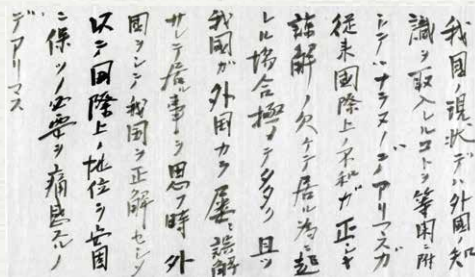 我国ノ現状デハ外国ノ知
識ヲ取入レルコトヲ等閑ニ附
シテハナラヌノデアリマスガ
従来国際上ノ不和ガ正シキ
諒解ノ欠ケテ居ル為ニ起
レル場合極メテ多ク且ツ
我国ガ外国カラ屡々誤解
サレテ居ル事ヲ思フ時外
国ヲシテ我国ヲ正解セシメ
以テ国際上ノ地位ヲ安固
ニ保ツノ必要ヲ痛感スルノ
デアリマス